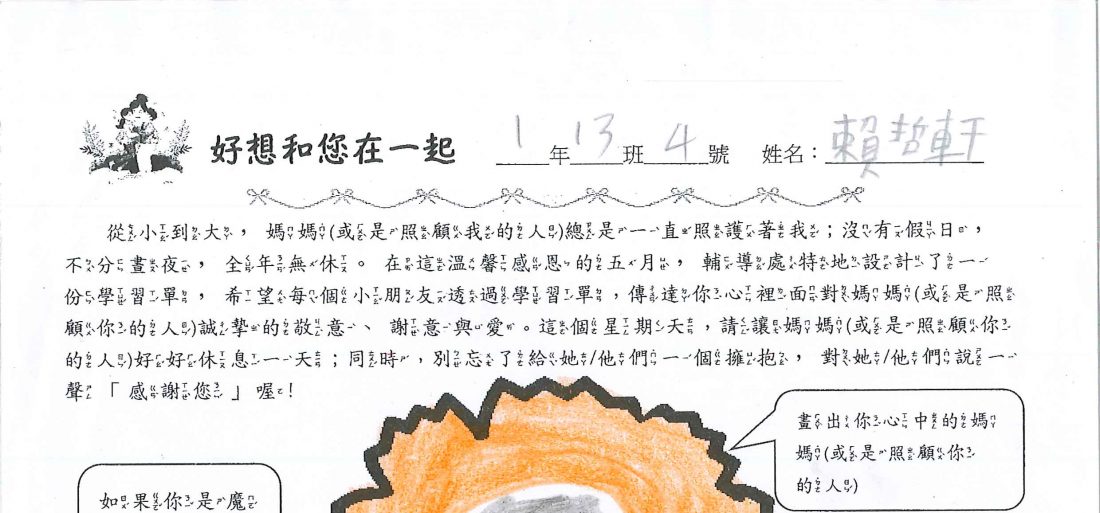 好想和您在一起 1年13班4號 姓名：賴哲軒
從小到大，媽媽(或是照顧我的人)總是一直照護著我；沒有假日，
不分晝夜，全年無休。在這溫馨感恩的五月，輔導處特地設計了一
份學習單，希望每個小朋友透過學習單，傳達你心裡面對媽媽(或是照
顧你的人)誠摯的敬意、謝意與愛。這個星期天，請讓媽媽(或是照顧你
的人)好好休息一天；同時，別忘了給她/他們一個擁抱，對她/他們說一
聲「感謝您」喔！
畫出你心中的媽
媽(或是照顧你
的人)
如果你是魔